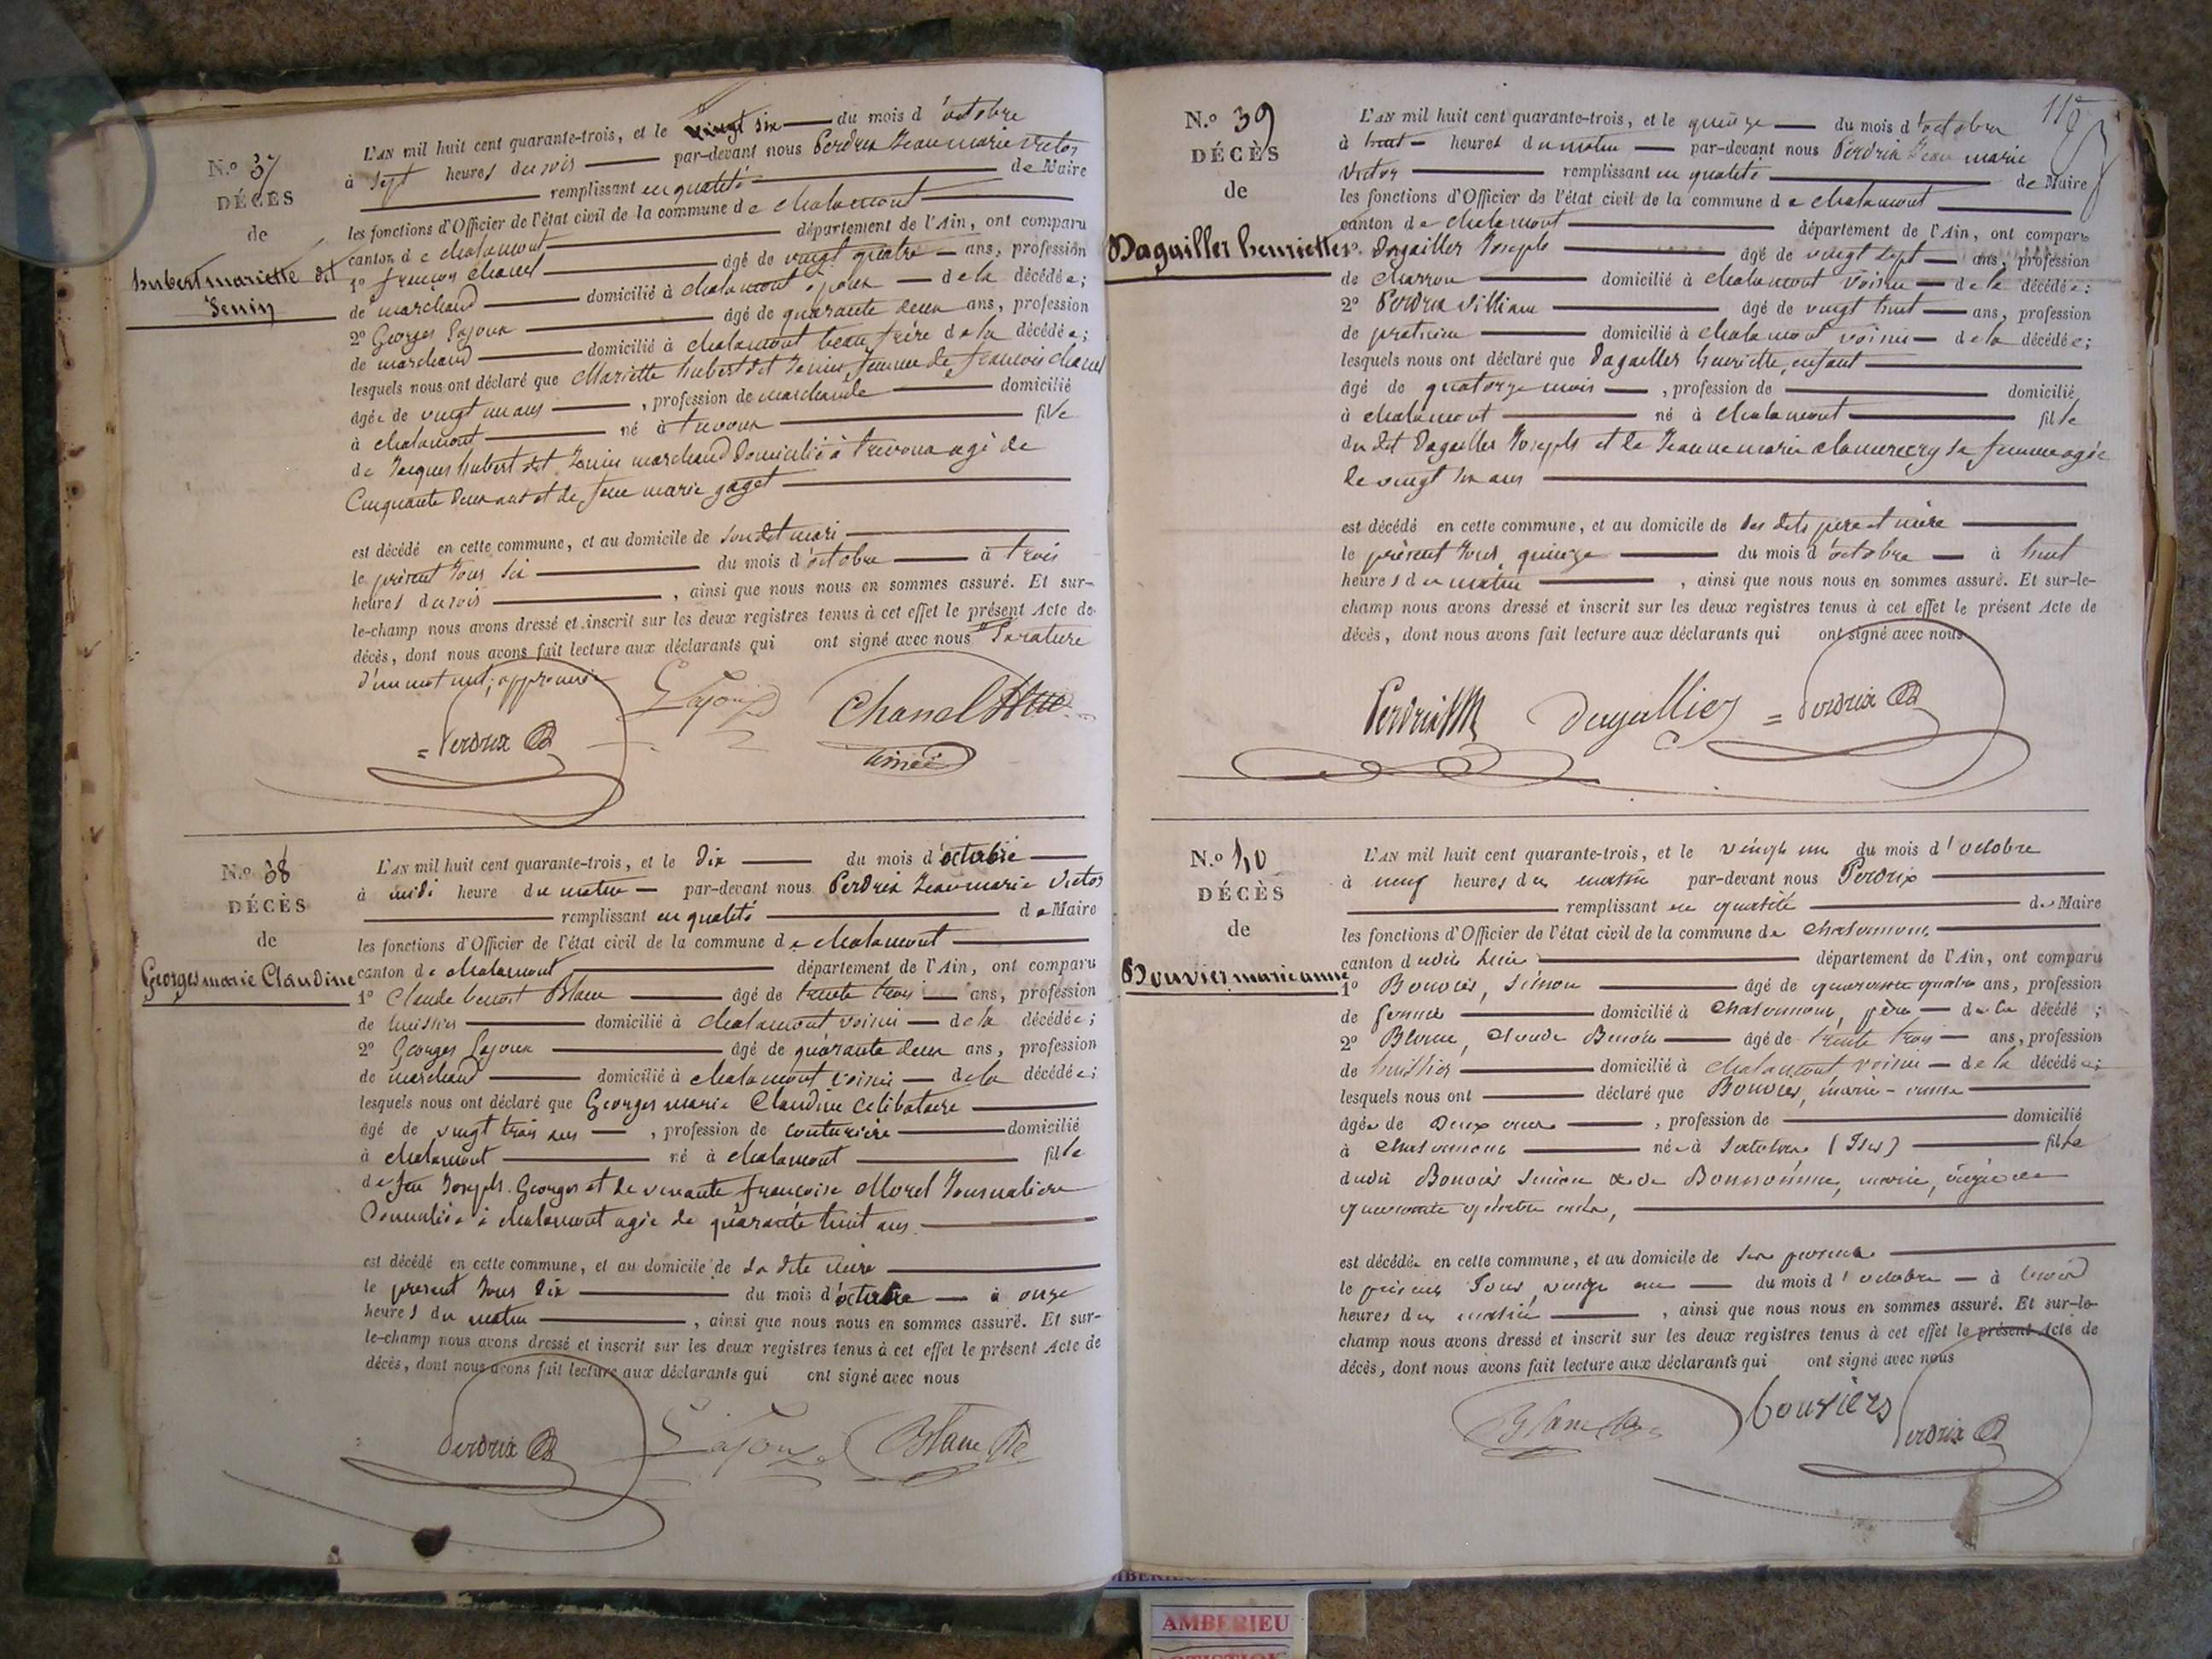 N.º 37
DÉCÈS
de
hubert mariette dit
Jenin
L'AN mil huit cent quarante-trois, et le six du mois d'octobre
à sept heures du soir par-devant nous Perdrix Jean marie Victor
remplissant en qualité de Maire
les fonctions d'Officier de l'état civil de la commune de chalamont
canton de chalamont département de l'Ain, ont comparu
1º françois chanel âgé de vingt quatre ans, profession
de marchand domicilié à chalamont époux de la décédée;
2º Georges Lajoux âgé de quarante deux ans, profession
de marchand domicilié à chalamont beau frère de la décédée;
lesquels nous ont déclaré que Mariette hubert dit Jenin, femme de francois chanel
âgée de vingt un ans, profession de marchande domicilié
à chalamont né à trevoux fille
de Jacques hubert dit Jenin marchand domicilié à trevoux agé de
Cinquante deux ans et de feue marie gaget
est décédé en cette commune, et au domicile de son dit mari
le présent jour six du mois d'octobre à trois
heures du soir, ainsi que nous nous en sommes assuré. Et sur-
le-champ nous avons dressé et inscrit sur les deux registres tenus à cet effet le présent Acte de
décès, dont nous avons fait lecture aux déclarants qui ont signé avec nous
d'un mot nul, approuvé
Perdrix GLajoux Chanel
aimé
N.º 38
DÉCÈS
de
Georges marie Claudine
L'AN mil huit cent quarante-trois, et le dix du mois d'octobre
à midi heure du matin par-devant nous Perdrix Jean marie Victor
remplissant en qualité de Maire
les fonctions d'Officier de l'état civil de la commune de chalamont
canton de chalamont département de l'Ain, ont comparu
1º Claude benoit Blanc âgé de trente trois ans, profession
de huissier domicilié à chalamont voisin de la décédée;
2º Georges Lajoux âgé de quarante deux ans, profession
de marchand domicilié à chalamont voisin de la décédée;
lesquels nous ont déclaré que Georges marie Claudine célibataire
âgé de vingt trois ans, profession de couturière domicilié
à chalamont né à chalamont fille
de feu Joseph Georges et de vivante françoise Morel Journalière
Domiciliée à chalamont agée de quarante huit ans
est décédé en cette commune, et au domicile de sa dite mère
le présent jour dix du mois d'octobre à onze
heures du matin, ainsi que nous nous en sommes assuré. Et sur-
le-champ nous avons dressé et inscrit sur les deux registres tenus à cet effet le présent Acte de
décès, dont nous avons fait lecture aux déclarants qui ont signé avec nous
Perdrix GLajoux Blanc
N.º 39
DÉCÈS
de
Dagailler henriette
L'AN mil huit cent quarante-trois, et le quinze du mois d'octobre
à huit heures du matin par-devant nous Perdrix Jean marie
Victor remplissant en qualité de Maire
les fonctions d'Officier de l'état civil de la commune de chalamont
canton de chalamont département de l'Ain, ont comparu
1º Dagailler Joseph âgé de vingt sept ans, profession
de charron domicilié à chalamont voisin de la décédée;
2º Perdrix William âgé de vingt huit ans, profession
de praticien domicilié à chalamont voisin de la décédée;
lesquels nous ont déclaré que Dagailler henriette, enfant
âgé de quatorze mois, profession de domicilié
à chalamont né à chalamont fille
du dit Dagailler Joseph et de Jeanne marie sa femme agée
de vingt six ans
est décédé en cette commune, et au domicile de ses dits père et mère
le présent jour, quinze du mois d'octobre à huit
heures du matin, ainsi que nous nous en sommes assuré. Et sur-le-
champ nous avons dressé et inscrit sur les deux registres tenus à cet effet le présent Acte de
décès, dont nous avons fait lecture aux déclarants qui ont signé avec nous
Perdrix Dagallier Perdrix
N.º 40
DÉCÈS
de
Bouvier marie anne
L'AN mil huit cent quarante-trois, et le vingt un du mois d'octobre
à neuf heures du matin par-devant nous Perdrix
remplissant en qualité de Maire
les fonctions d'Officier de l'état civil de la commune de chalamont,
canton dudit lieu département de l'Ain, ont comparu
1º Bouvier, Simon âgé de quarante quatre ans, profession
de domicilié à chalamont, père de la décédé;
2º Blanc, Claude Benoit âgé de trente trois ans, profession
de huissier domicilié à chalamont voisin de la décédée;
lesquels nous ont déclaré que Bouvier, marie-anne
âgée de deux ans, profession de domicilié
à chalamont née à (Isère) fille
dudit Bouvier Simon & de marie, âgée de
quarante quatre ans,
est décédée en cette commune, et au domicile de son père
le présent jour, vingt un du mois d'octobre à trois
heures du matin, ainsi que nous nous en sommes assuré. Et sur-le-
champ nous avons dressé et inscrit sur les deux registres tenus à cet effet le présent Acte de
décès, dont nous avons fait lecture aux déclarants qui ont signé avec nous
Blanc bouviers Perdrix
AMBERIEU